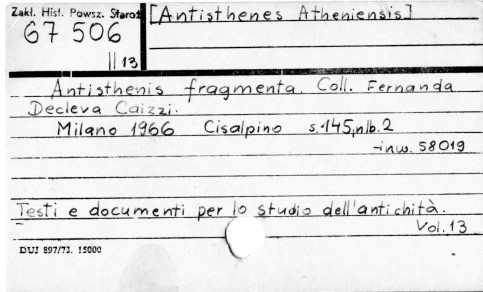 Zakł. Hist. Powsz. Staroż
[Antisthenes Atheniensis]
67 506
II 13
Antisthenis fragmenta. Coll. Fernanda
Decleva Caizzi.
Milano 1966 Cisalpino s.145, nlb.2
-inw. 58019
Testi e documenti per lo studio dell'antichità.
Vol. 13
DUJ 897/73. 15000